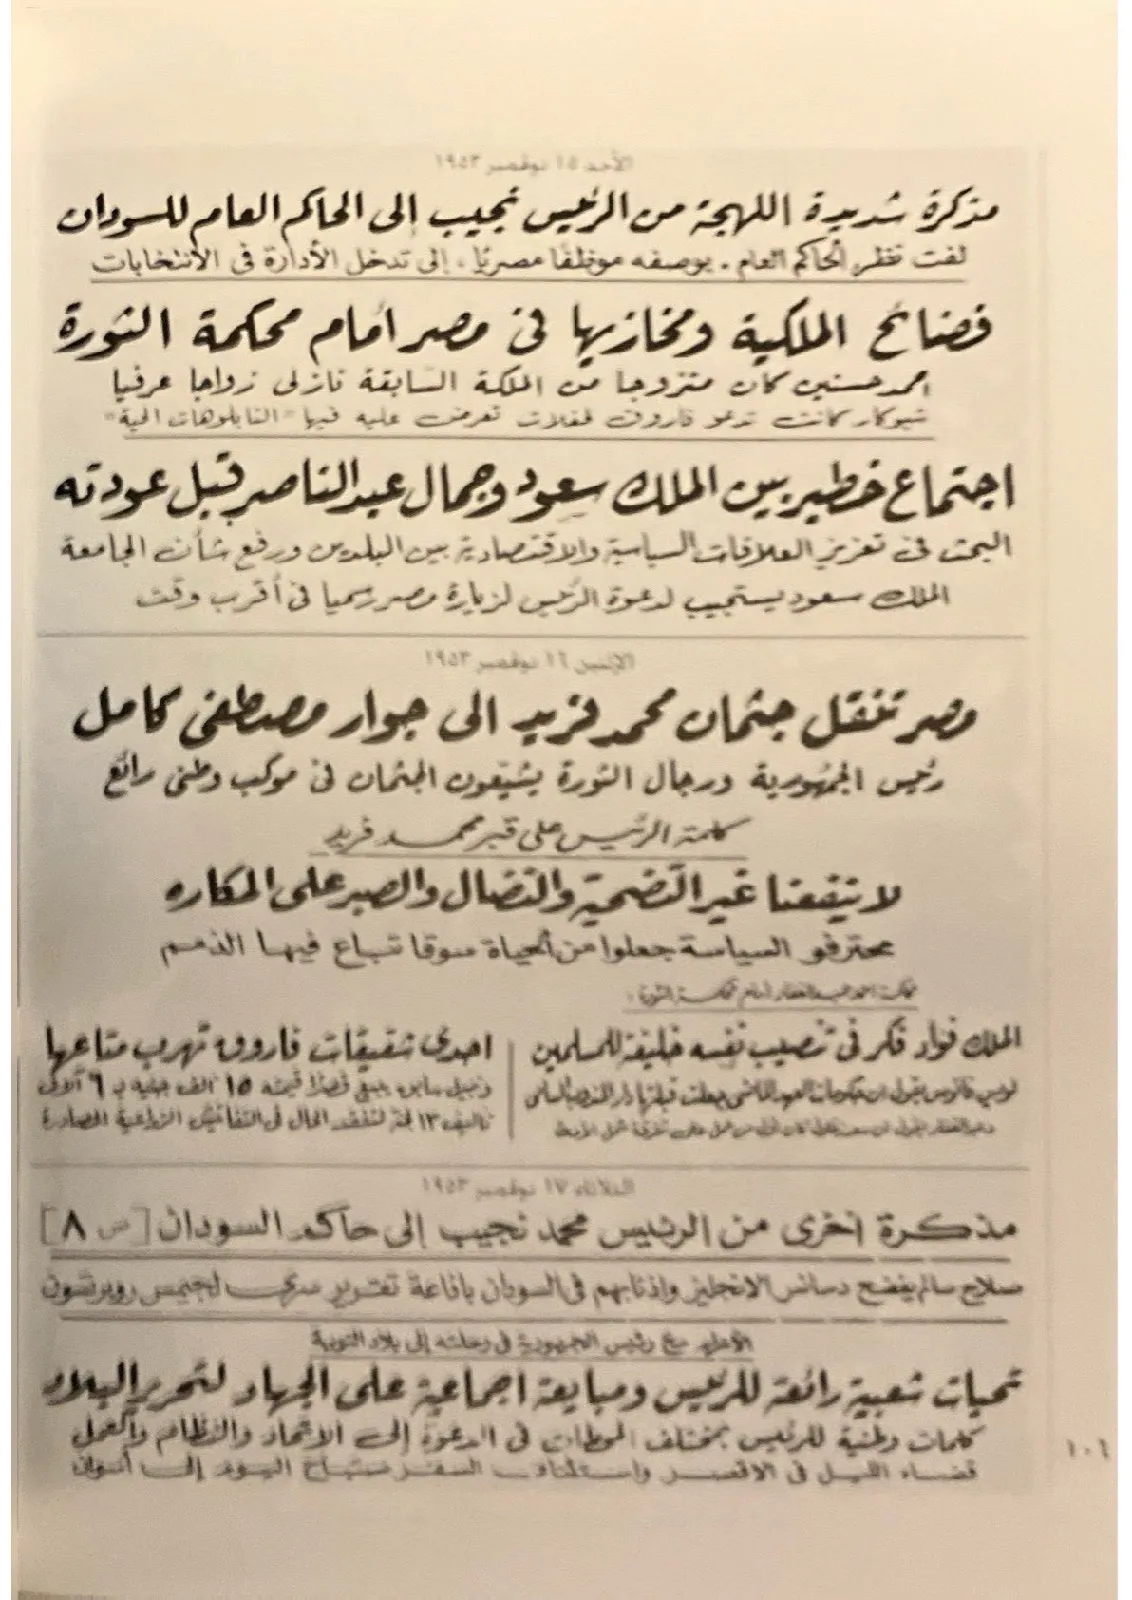 الأحد ١٥ نوفمبر ١٩٥٣
مذكرة شديدة اللهجة من الرئيس نجيب إلى الحاكم العام للسودان
لفت نظر الحاكم العام . بوصفه موظفا مصريا . إلى تدخل الأدارة في الأنتخابات
فضائح الملكية ومخازيها في مصر أمام محكمة الثورة
احمد حسنين كان متزوجا من الملكة السابقة نازلى زواجا عرفيا
شيوكار كانت تدعو فاروق لحفلات تعرض عليه فيها "التابلوهات الحية"
اجتماع خطير بين الملك سعود وجمال عبد الناصر قبل عودته
البحث في تعزيز العلاقات السياسية والاقتصادية بين البلدين ورفع شأن الجامعة
الملك سعود يستجيب لدعوة الرئيس لزيارة مصر رسميا في أقرب وقت
الإثنين ١٦ نوفمبر ١٩٥٣
مصر تنقل جثمان محمد فريد الى جوار مصطفى كامل
رئيس الجمهورية ورجال الثورة يشيعون الجثمان في موكب وطنى رائع
كلمة الرئيس على قبر محمد فريد
لا ينفعنا غير التضحية والنضال والصبر على المكاره
محترفو السياسة جعلوا من الحياة سوقا تباع فيها الذمم
محاكمة احمد عبد الغفار أمام محكمة الثورة :
الملك فؤاد فكر في تنصيب نفسه خليفة للمسلمين
احدى شقيقات فاروق تهرب متاعها
١٥ الف جنيه بـ ٦ آلاف
تأليف ١٣ لجنة لتفقد الحال في التفاتيش الزراعية المصادرة
الثلاثاء ١٧ نوفمبر ١٩٥٣
مذكرة اخرى من الرئيس محمد نجيب إلى حاكم السودان [ س ٨ ]
صلاح سالم يفضح دسائس الانجليز واذنابهم في السودان باذاعة تقرير سرى لجيمس روبرتسون
الأهرام مع رئيس الجمهورية في رحلته إلى بلاد النوبة
تحيات شعبية رائعة للرئيس ومبايعة اجماعية على الجهاد لتحرير البلاد
كلمات وطنية للرئيس بمختلف المحطات في الدعوة إلى الاتحاد والنظام والعمل
قضاء الليل في الاقصر واستئناف السفر صباح اليوم إلى أسوان